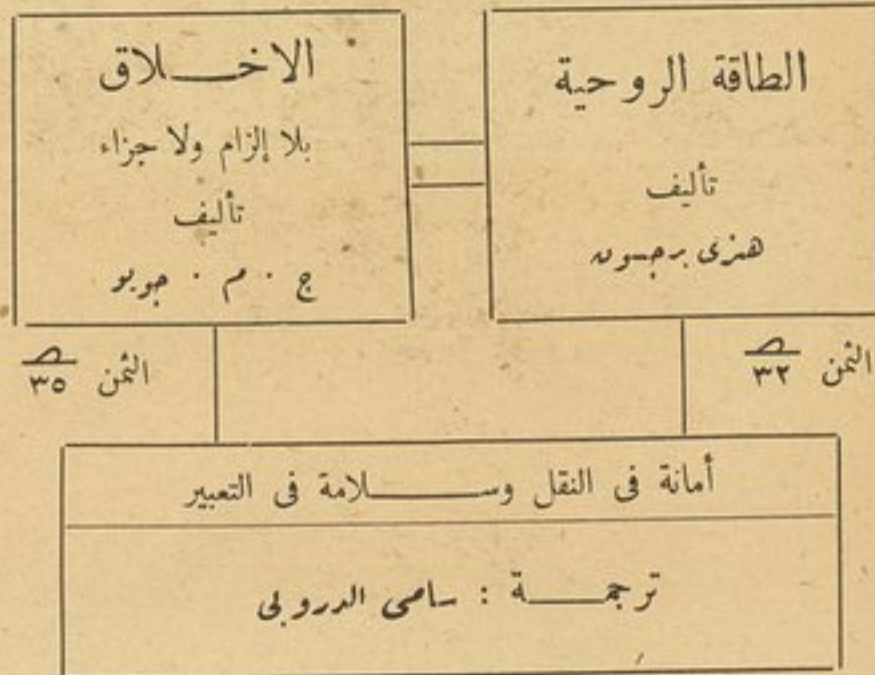 الطاقة الروحية
تأليف
هنرى برجسون
الثمن ٣٢
الاخلاق
بلا إلزام ولا جزاء
تأليف
ج . م . جويو
الثمن ٣٥
أمانة فى النقل وسلامة فى التعبير
ترجمة : سامى الدروبى